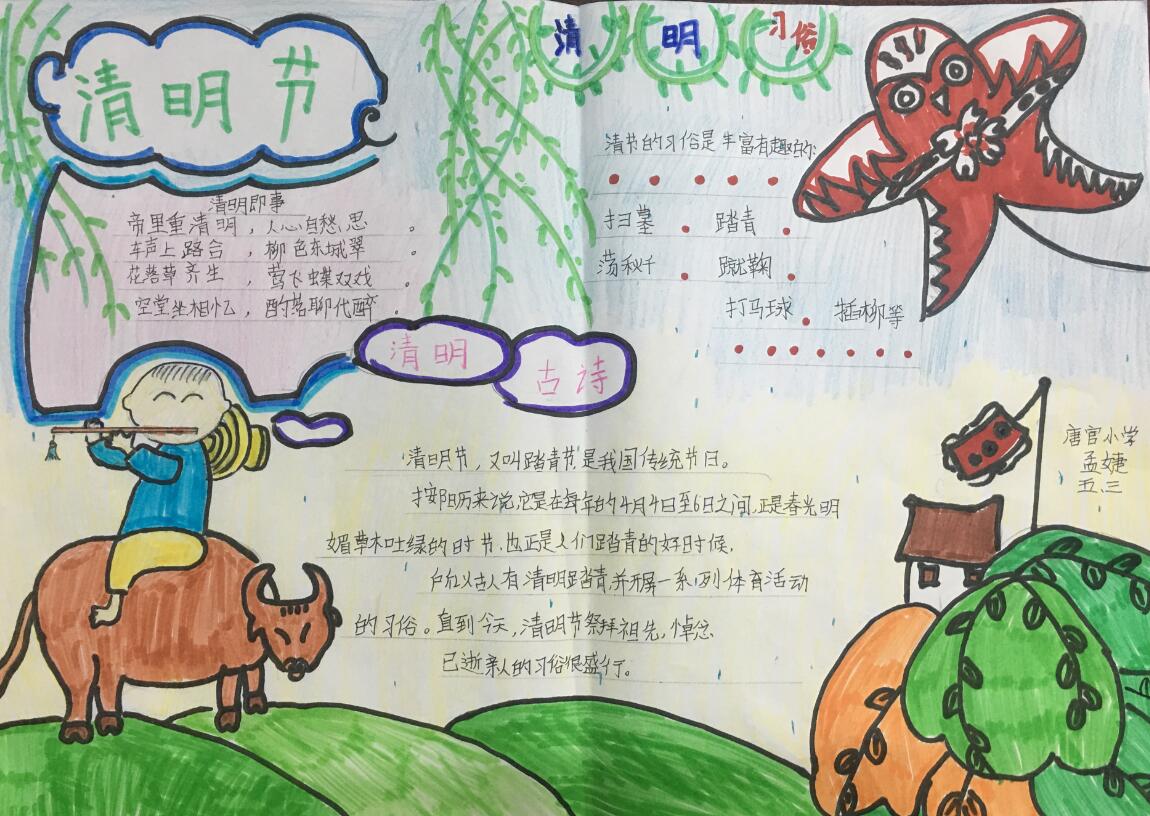 清明节
清明即事
帝里重清明，人心自愁思。
车声上路合，柳色东城翠。
花落草齐生，莺飞蝶双戏。
空堂坐相忆，酌茗聊代醉。
清明
古诗
清明习俗
清节的习俗是丰富有趣的：
扫墓 踏青
荡秋千 蹴鞠
打马球 插柳等
清明节，又叫踏青节，是我国传统节日。
按阳历来说，它是在每年的4月4日至6日之间，正是春光明
媚草木吐绿的时节，也正是人们踏青的好时候，
所以古人有清明踏青，并开展一系列体育活动
的习俗。直到今天，清明节祭拜祖先，悼念
已逝亲人的习俗很盛行。
唐宫小学
孟婕
五.三